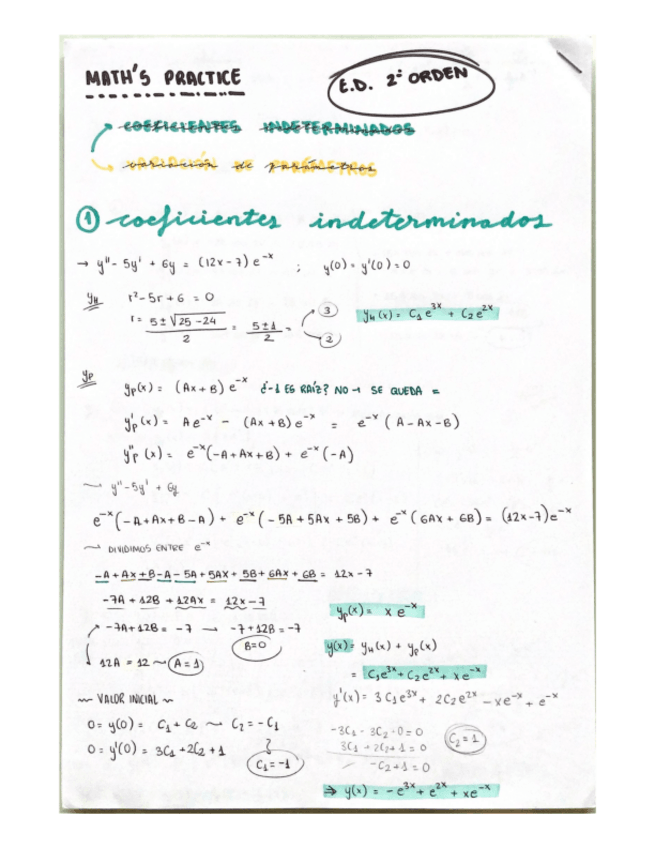 MATH'S PRACTICE
E.D. 2º ORDEN
COEFICIENTES INDETERMINADOS
variación de parámetros
① coeficientes indeterminados
→ y'' - 5y' + 6y = (12x-7) e^-x ; y(0) = y'(0) = 0
yH r² - 5r + 6 = 0
r = 5 ± √25-24 / 2 = 5 ± 1 / 2 = 3 2
yH(x) = C1 e^3x + C2 e^2x
yp yp(x) = (Ax + B) e^-x ¿-1 ES RAÍZ? NO → SE QUEDA =
y'p(x) = A e^-x - (Ax + B) e^-x = e^-x (A - Ax - B)
y''p(x) = e^-x (-A + Ax + B) + e^-x (-A)
y'' - 5y' + 6y
e^-x (-A + Ax + B - A) + e^-x (-5A + 5Ax + 5B) + e^-x (6Ax + 6B) = (12x-7) e^-x
DIVIDIMOS ENTRE e^-x
-A + Ax + B - A - 5A + 5AX + 5B + 6AX + 6B = 12x - 7
-7A + 12B + 12Ax = 12x - 7
-7A + 12B = -7 → -7 + 12B = -7
B = 0
12A = 12 ~ A = 1
yp(x) = x e^-x
y(x) = yH(x) + yp(x)
= C1e^3x + C2e^2x + xe^-x
y'(x) = 3C1e^3x + 2C2e^2x - xe^-x + e^-x
~ VALOR INICIAL ~
0 = y(0) = C1 + C2 ~ C2 = -C1
0 = y'(0) = 3C1 + 2C2 + 1
C1 = -1
-3C1 - 3C2 + 0 = 0
3C1 + 2C2 + 1 = 0
- C2 + 1 = 0
C2 = 1
⇒ y(x) = - e^3x + e^2x + xe^-x